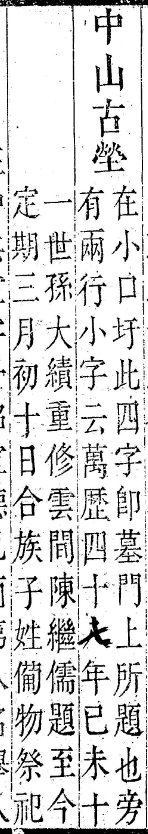 中山古塋
在小口圩此四字卽墓門上所題也旁
有兩行小字云萬歷四十七年已未十
一世孫大績重修雲間陳繼儒題至今
定期三月初十日合族子姓備物祭祀